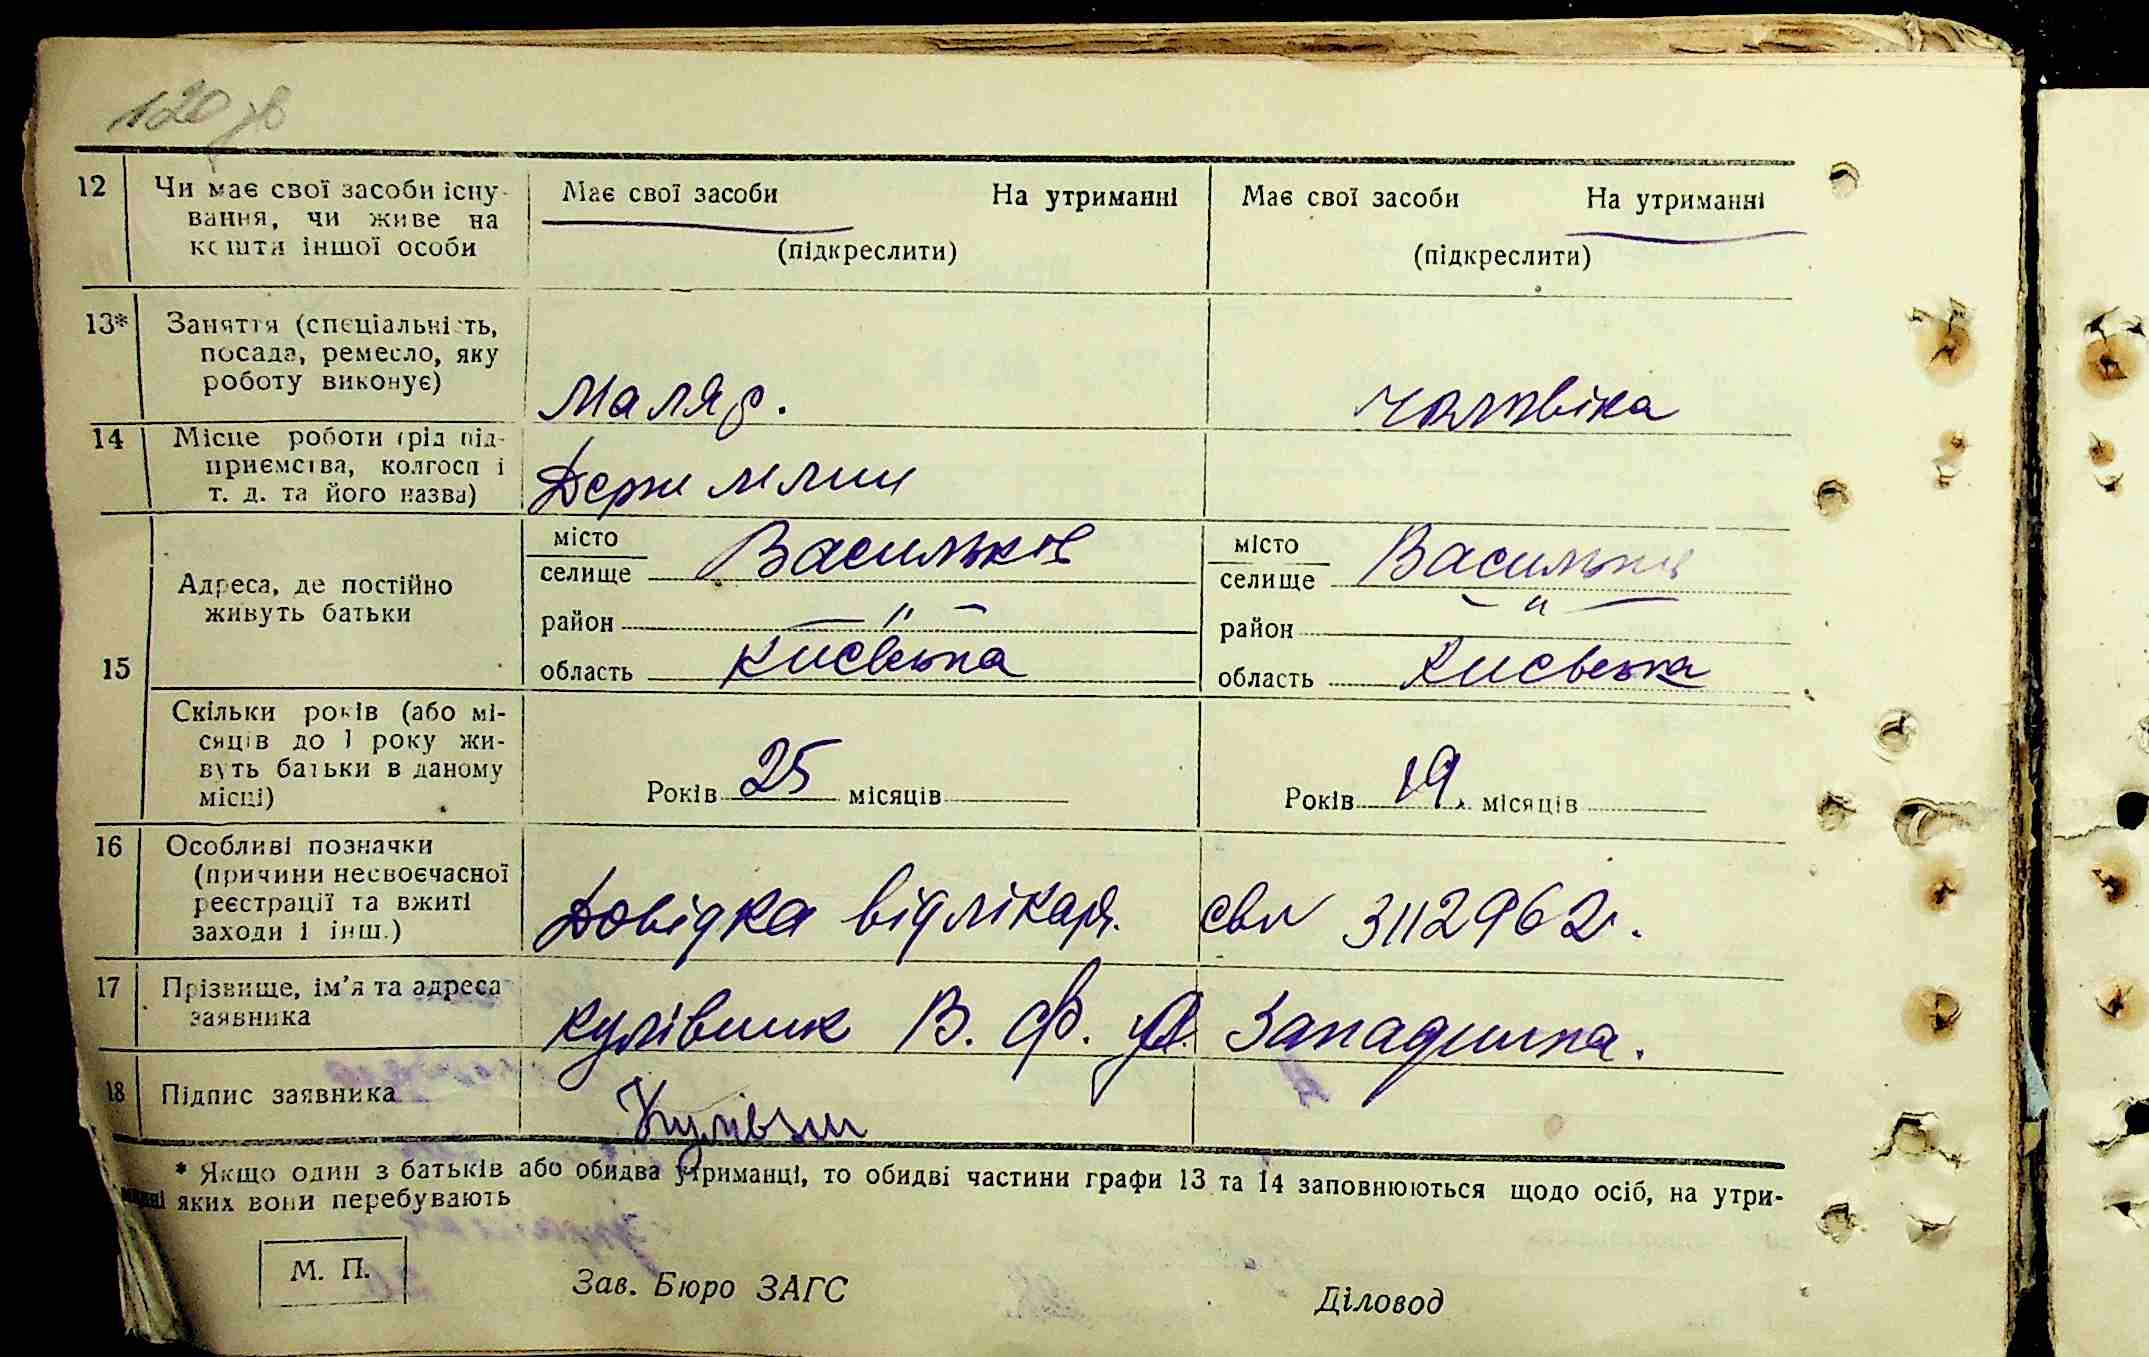 120 зв
12 Чи має свої засоби існу- Має свої засоби На утриманні Має свої засоби На утриманні
вання, чи живе на
кошти іншої особи (підкреслити) (підкреслити)
13* Заняття (спеціальність,
посада, ремесло, яку
роботу виконує) Маляр. чоловіка
14 Місце роботи (рід під-
приємства, колгосп і
т. д. та його назва) Держ
15 Адреса, де постійно
живуть батьки
місто
селище Васильків
район — " —
область Київська
місто
селище Васильків
район — " —
область Київська
Скільки років (або мі-
сяців до 1 року жи-
вуть батьки в даному
місці)
Років 25 місяців Років 19. місяців
16 Особливі позначки
(причини несвоєчасної
реєстрації та вжиті
заходи і інш.)
Довідка від лікаря. 3112962
17 Прізвище, ім'я та адреса
заявника
Кулівник В. Ф. Западинка.
18 Підпис заявника
* Якщо один з батьків або обидва утриманці, то обидві частини графи 13 та 14 заповнюються щодо осіб, на утри-
манні яких вони перебувають
М. П.
Зав. Бюро ЗАГС Діловод